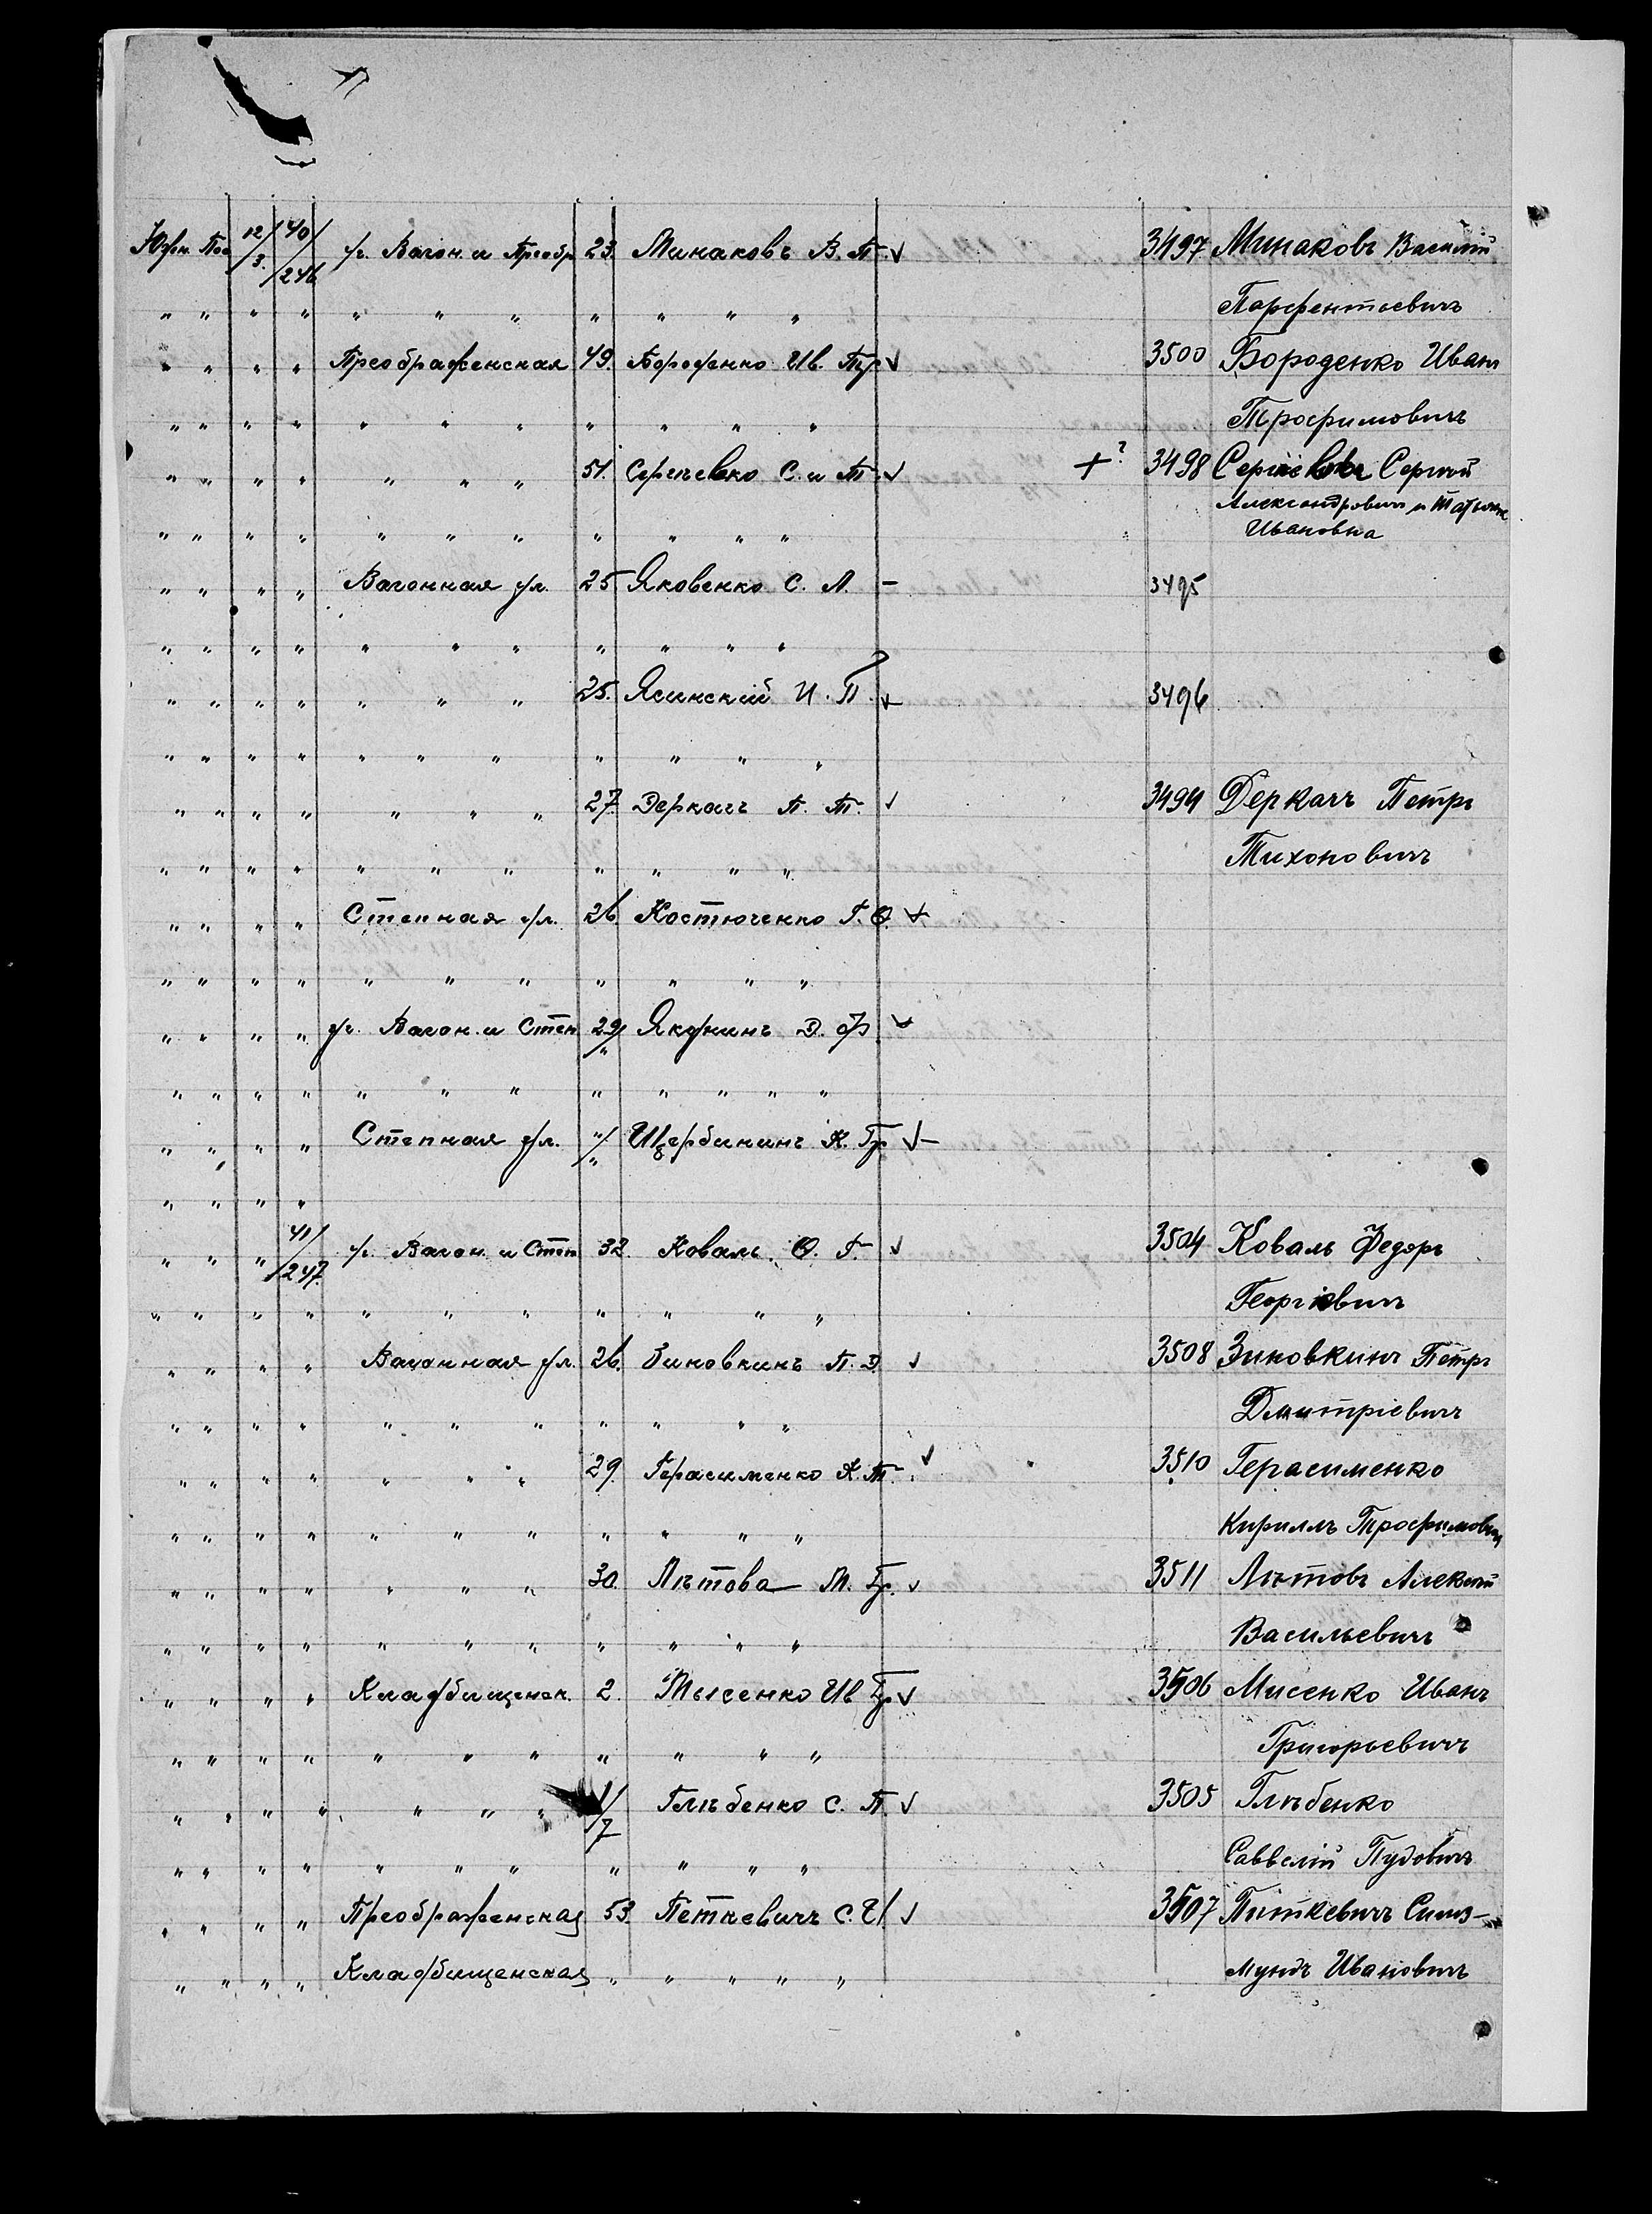 Южн. Пос. 12/3. 40/246 у. Вагон. и Преобр 23. Минаковъ В. П. ✓ 3497 Минаковъ Василий
" " " " " " " " " " " Парфентьевичъ
" " " " Преображенская 49. Бороденко Ив. Тр ✓ 3500 Бороденко Иванъ
" " " " " " " " " " " Трофимовичъ
" " " " " " " 51. Сергѣевко С. и Т. ✓ +? 3498 Сергѣй
Александровичъ и Татьяна
" " " " " " " " " " " Ивановна
" " " " Вагонная ул. 25 Яковенко С. Л. – 3495
" " " " " " " " " " "
" " " " " " " 25. Ясинский И. П. ✓ 3496
" " " " " " " " " " "
" " " " " " " 27. Деркачъ П. Т. ✓ 3494 Деркачъ Петръ
" " " " " " " " " " " Тихоновичъ
" " " " Степная ул. 26. Костюченко Г. Ѳ. ✓
" " " " " " " " " " "
" " " " у. Вагон. и Степ 29/" Якунинъ Д. Ф. ✓
" " " " " " " " " " " "
" " " " Степная ул. "/" Щербининъ К. Гр ✓–
" " " "
" " " 41/247. у. Вагон. и Степ 32 Коваль Ѳ. Г. ✓ 3504 Коваль Федоръ
" " " " " " " " " " " Георгіевичъ
" " " " Вагонная ул. 26. Зиновкинъ П. Д. ✓ 3508 Зиновкинъ Петръ
" " " " " " " " " " " Дмитріевичъ
" " " " " " " 29. Герасименко К. Т. ✓ 3510 Герасименко
" " " " " " " " " " " Кириллъ Трофимович
" " " " " " " 30. Лѣтова М. Гр. ✓ 3511 Лѣтовъ Алексѣй
" " " " " " " " " " " Васильевичъ
" " " " Кладбищенск. 2. Мысенко Ив Гр ✓ 3506 Мисенко Иванъ
" " " " " " " " " " " Григорьевичъ
" " " " " " " 1/7 Глѣбенко С. П ✓ 3505 Глѣбенко
" " " " " " " " " " " Саввелій Пудовичъ
" " " " Преображенская 53. Петкевичъ С. И ✓ 3507 Питкевичъ Сигиз-
" " " " Кладбищенская " " " " " мундъ Ивановичъ